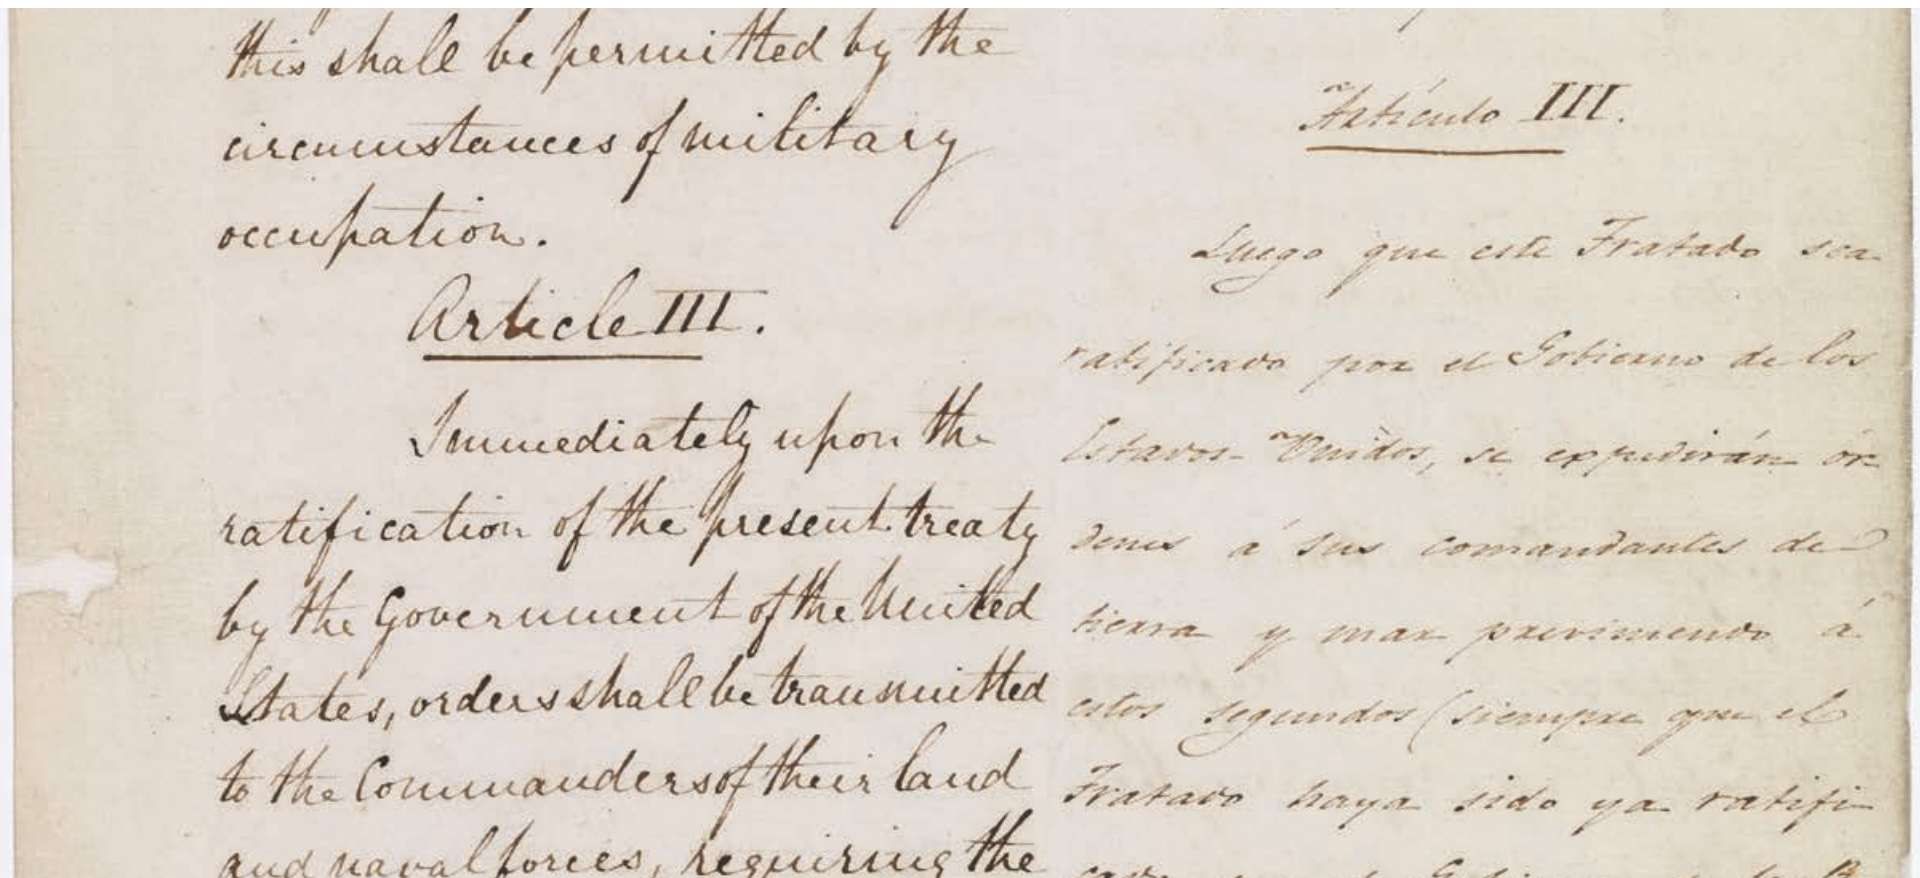 this shall be permitted by the
circumstances of military
occupation.
Article III.
Immediately upon the
ratification of the present treaty
by the Government of the United
States, orders shall be transmitted
to the Commanders of their land
and naval forces, requiring the
Artículo III.
Luego que este Tratado sea
ratificado por el Gobierno de los
Estados-Unidos, se expedirán ór-
denes á sus comandantes de
tierra y mar previniendo á
estos segundos (siempre que el
Tratado haya sido ya ratifi-